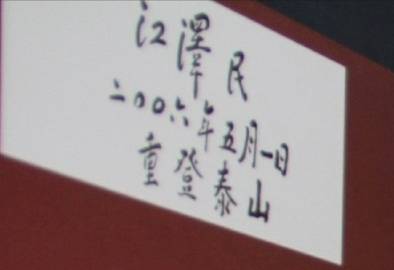 江澤民
二〇〇六年五月一日
重登泰山